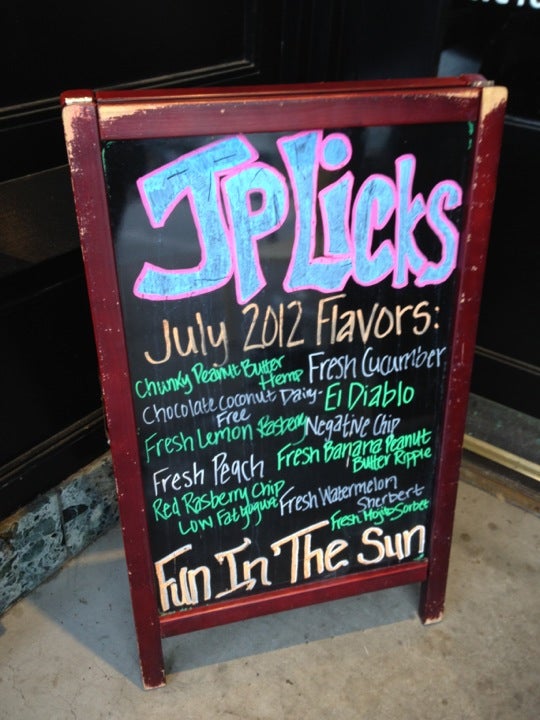 JP Licks
July 2012 Flavors:
Chunky Peanut Butter
Hemp
Fresh Cucumber
Chocolate Coconut Daiy-
Free
El Diablo
Fresh Lemon Rasbery
Negative Chip
Fresh Peach
Fresh Banana Peanut
Butter Ripple
Red Rasberry Chip
Low Fat Yogurt
Fresh Watermelon
Sherbert
Fresh Mojito Sorbet
Fun In The Sun